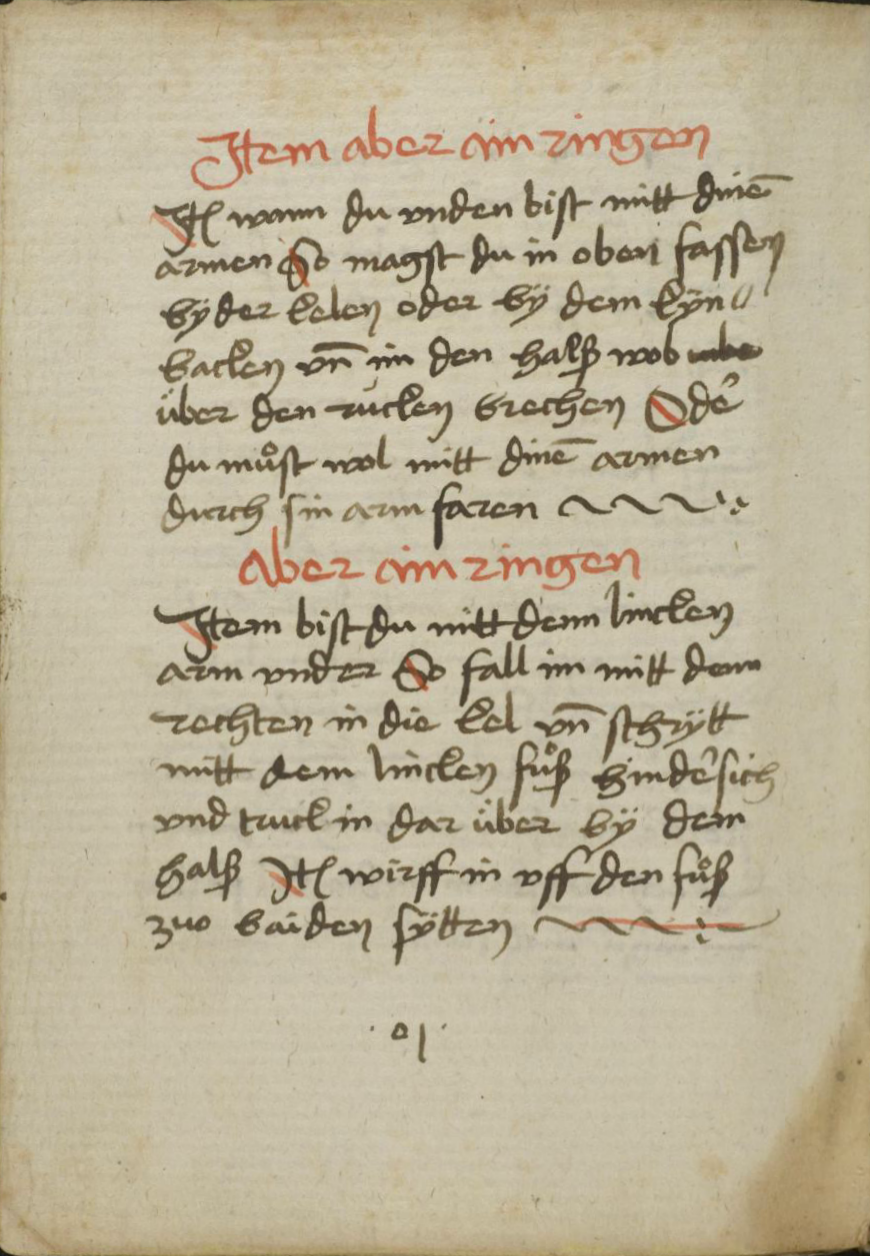 Jtem aber ain ringen
Jtem wann du vnden bist mitt dinē
armen So magst du in oben fassen
by̎ der kelen oder by̎ dem kÿn
backen vn̄ im den halß wol
über den rucken brechen Ode᷒
du mu᷑st wol mitt dinē armen
durch sin arm faren
Aber ain ringen
Jtem bist du mitt dem lincken
arm vnder So fall im mitt dem
rechten in die kel vn̄ schrÿtt
mitt dem lincken fuͦß hinde᷒sich
vnd truck in dar über bÿ dem
halß Jtem wirff in vff den fuͦß
zuo baiden sÿtten